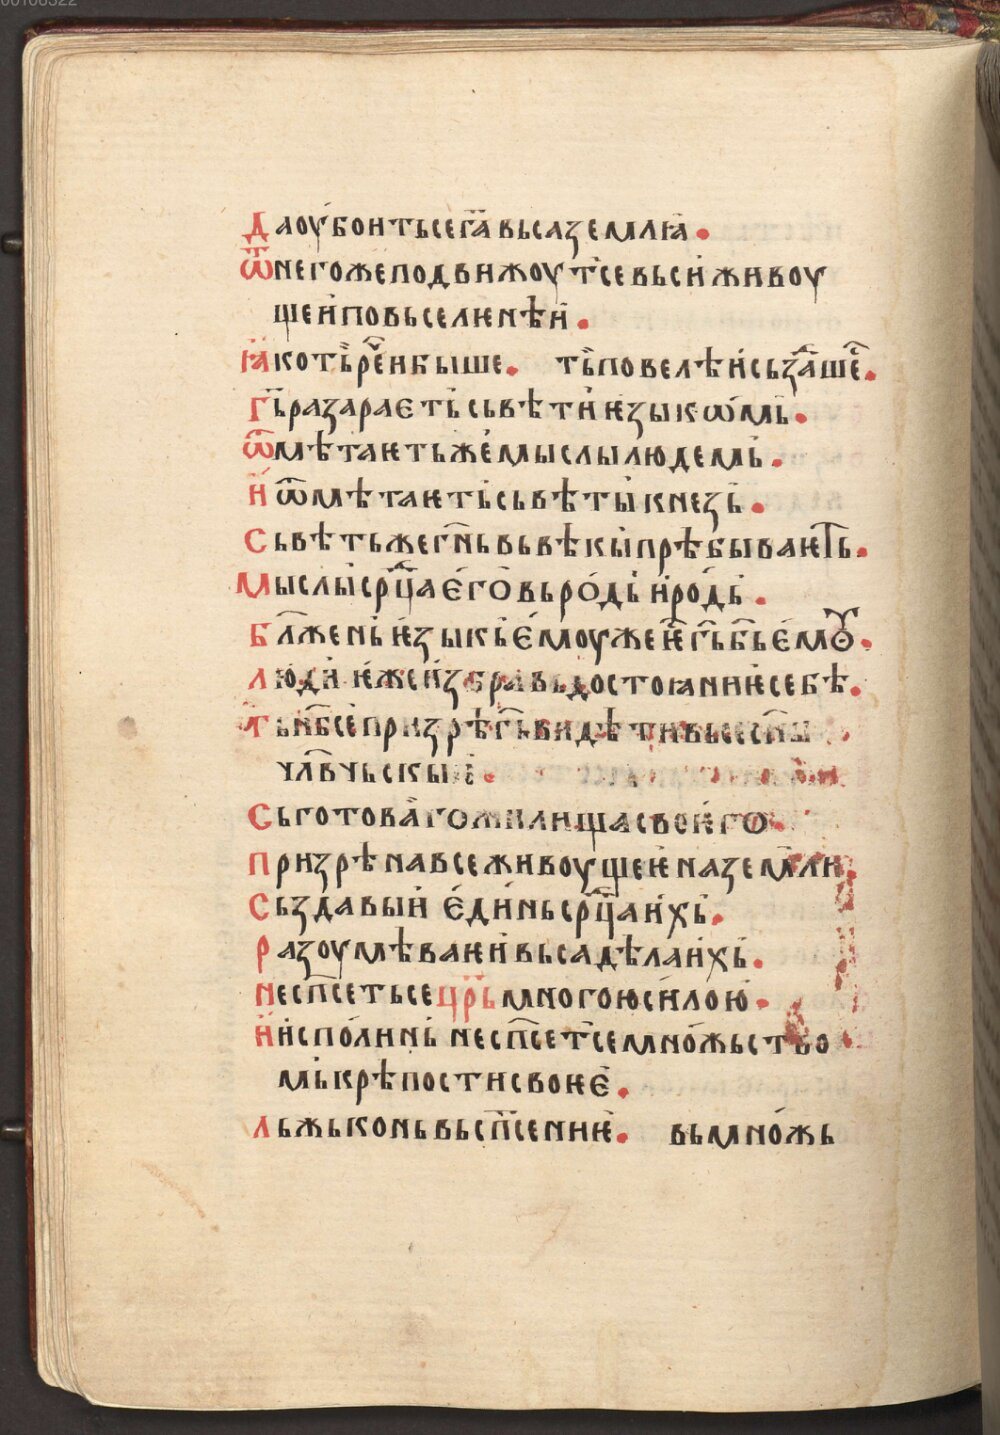 00106322
Да оубоит се га҃ вьса землꙗ.
Ѿ него же подвижоут҃се вьси живоу
щеи по вьселѥнѣи.
Ꙗко тъ рече и быше. ть повелѣ и сьзⷣашеⷭ.
Гь҃ разараѥть сьвѣти ѥзыкѡмь.
Ѿмѣтаѥть же мысли людемь.
И ѿмѣтаѥть сьвѣты кнезь.
Сьвѣть же гн҃ь вь вѣкы прѣбываѥть.
Мысли срⷣца ѥго вь родь и родь.
Блажень ѥзыкь ѥмоу же ѥ гь҃ бь҃ ѥмꙋ.
Люди иже избра вь достоꙗниѥ себѣ.
Ть нб҃се призрѣ гь҃ видѣти вьсе сн҃ы
чл҃вчьскыѥ.
Сьготоваго жилища своѥго
Призрѣ на всеживоущеѥ на земли.
Сьздавыи ѥдинь срⷣца ихь.
Разоумѣваѥи вьса дѣла ихь.
Не сп҃сеть се цр҃ь многою силою.
И исполинь не сп҃сет се множьство
мь крѣпости своѥѥ.
Льжь конь вь сп҃сениѥ. вь множь